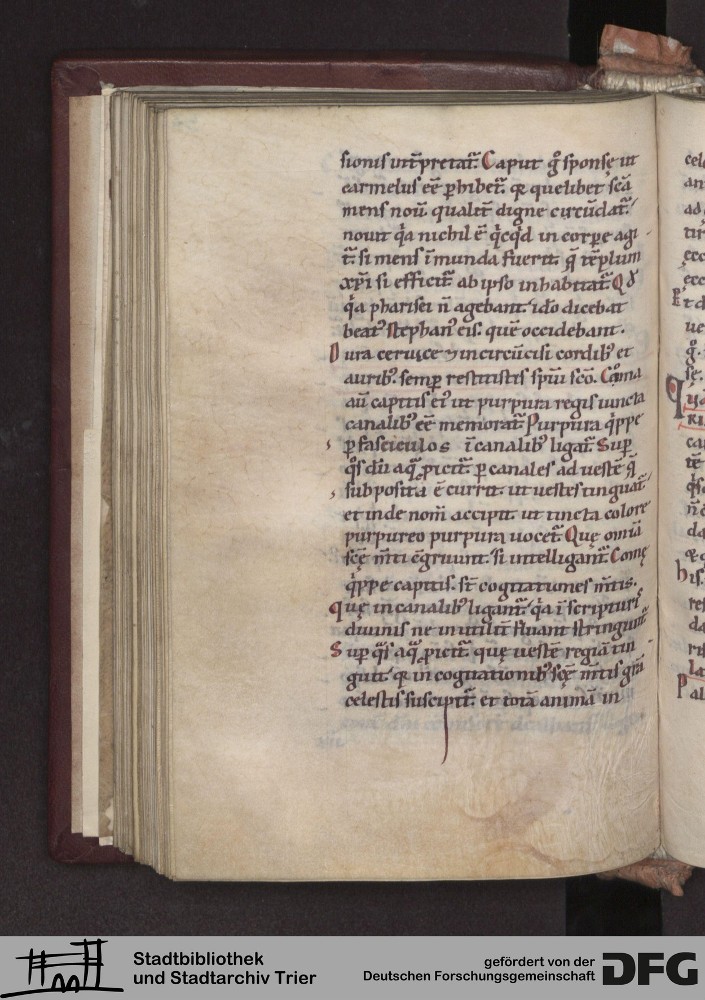 sionis int̄pretat᷑. Caput g̊ sponsę ut
carmelus eē ꝑhibet᷑. qꝛ quelibet scā
mens nou̅ qualit̅ digne circu̅dat᷑.
nouit q̇a nichil ē q̇cq̇d in corpe agi
t᷑. si mens i̅munda fuerit. q̅ te̅plum
xp̅i si efficit᷑ ab ipso inhabitat᷑. Qd̅
q̇a pharisei n̅ agebant. id̊o dicebat
beat᷒ stephan᷒ eis. que̅ occidebant.
Dura ceruice ⁊ incircu̅cisi cordib᷒ et
aurib᷒. semp restitistis spu̅i sc̅o. Coma
au̅ capitis ei᷒ ut purpura regis iuncta
canalib᷒ eē memorat᷑. Purpura q̇ppe
ꝑ fasciculos i̅ canalib᷒ ligat᷑. Sup
q̊s du̅ aq̅ ꝓicit᷑ ꝑ canales ad ueste̅ q̅
subposita ē currit. ut uestes tinguat᷑
et inde nom̅ accipit. ut tincta colore
purpureo purpura uocet᷑. Quę omia
scę m̅ti c̅gruunt. si intelligant᷑. Comę
q̇ppe capitis. st̅ cogitationes m̅tis.
Quę in canalib᷒ ligant᷑. q̇a i̅ scripturis
diuinis ne inutilit̅ fluant stringunt᷑
Sup q̊s aq̅ ꝓicit᷑ quę ueste̅ regia̅ tin
guit. qꝛ in cogitationib᷒ scę m̅tis gr̅a
celestis suscipit᷑. et tota̅ anima̅ in
Stadtbibliothek
und Stadtarchiv Trier
gefördert von der
Deutschen Forschungsgemeinschaft
DFG